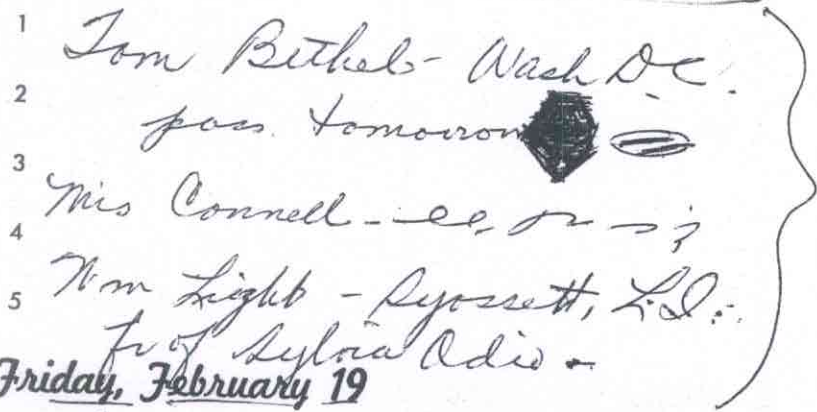 1
Tom Bethel - Wash D.C.
2
poss. tomorrow
3
Mrs Connell -
4
Wm Light - Syossett, L.I.
5
fr of Sylvia Odio -
Friday, February 19